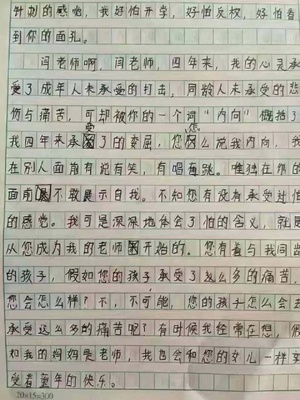 针刺的感觉，我好怕开学，好怕反校，好怕看
到你的面孔。
闫老师啊，闫老师，四年来，我的心灵承
受了成年人未承受的打击，同龄人未承受的悲
伤与痛苦，可却被你的一个词"内向"概括了
我四年来承受了的委屈，您怎么说我内向，我
在别人面前有说有笑，有唱有跳。唯独在你的
面前不敢展示自我。不知您有没有承受过怕
的感觉。我可是深深地体会了怕的含义，就
从您成为我的老师开始的。您有着与我同
的孩子，假如您的孩子承受了这么多的痛苦，
您会怎么样？不，不可能，您的孩子怎么会
承受这么多的痛苦呢？有时候我经常在想，假
如我的妈妈是老师，我也会和您的女儿一样
受着童年的快乐。
20×15=300